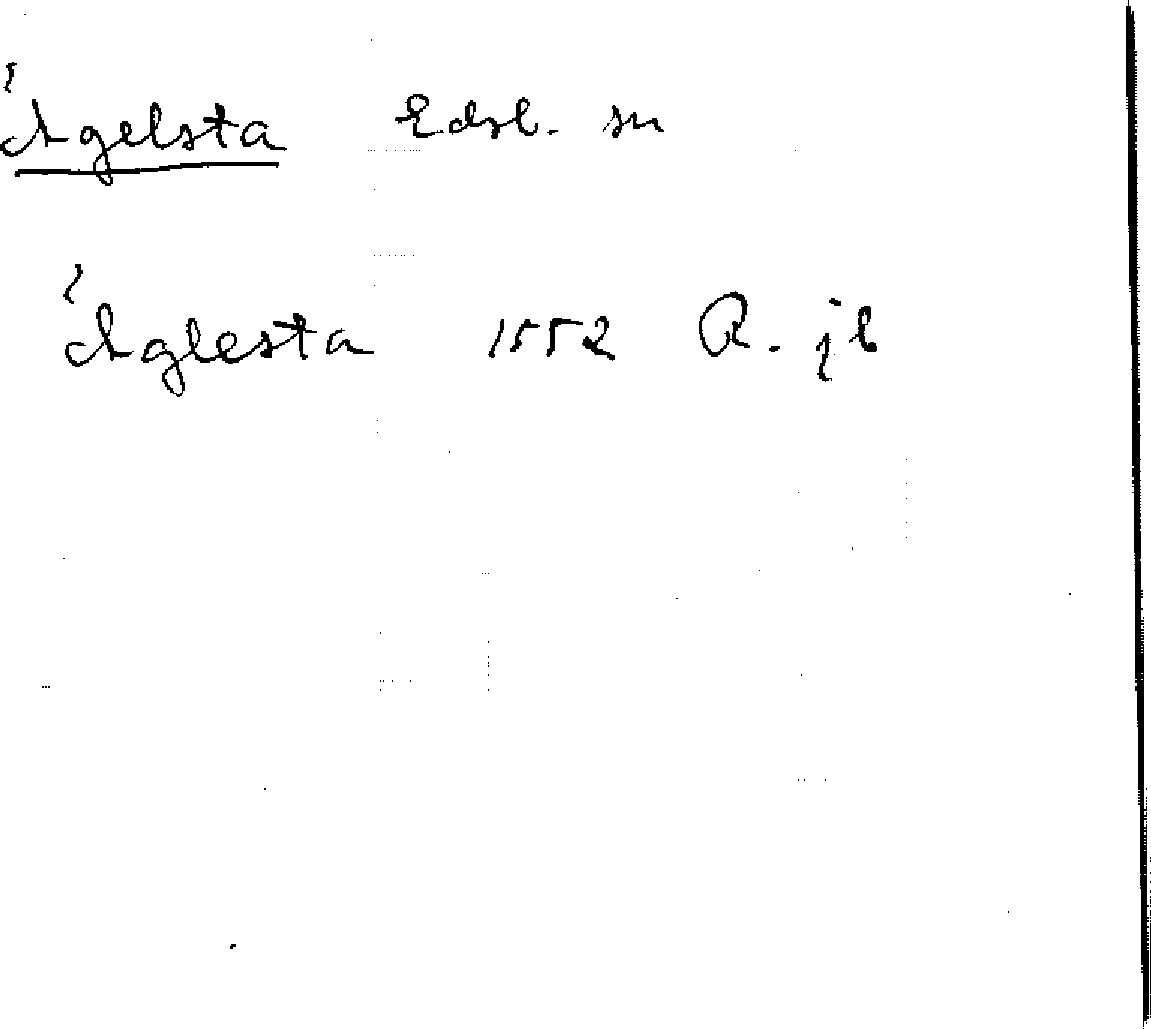 Ägelsta Edsb. sn
Äglesta 1552 R. jb